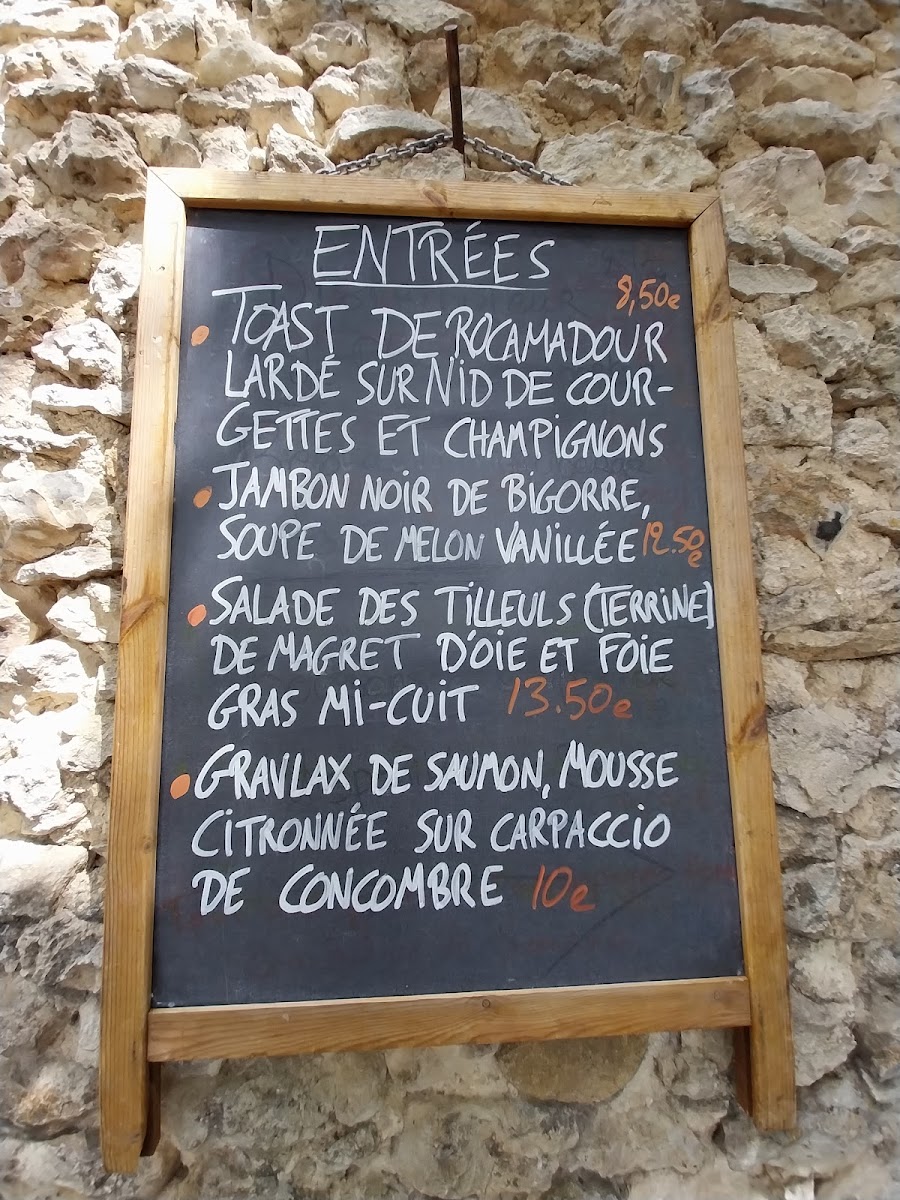 ENTRÉES
8,50e
TOAST DE ROCAMADOUR
LARDÉ SUR NID DE COUR-
GETTES ET CHAMPIGNONS
JAMBON NOIR DE BIGORRE,
SOUPE DE MELON VANILLÉE 12.50e
SALADE DES TILLEULS (TERRINE)
DE MAGRET D'OIE ET FOIE
GRAS MI-CUIT 13.50e
GRAVLAX DE SAUMON, MOUSSE
CITRONNÉE SUR CARPACCIO
DE CONCOMBRE 10e